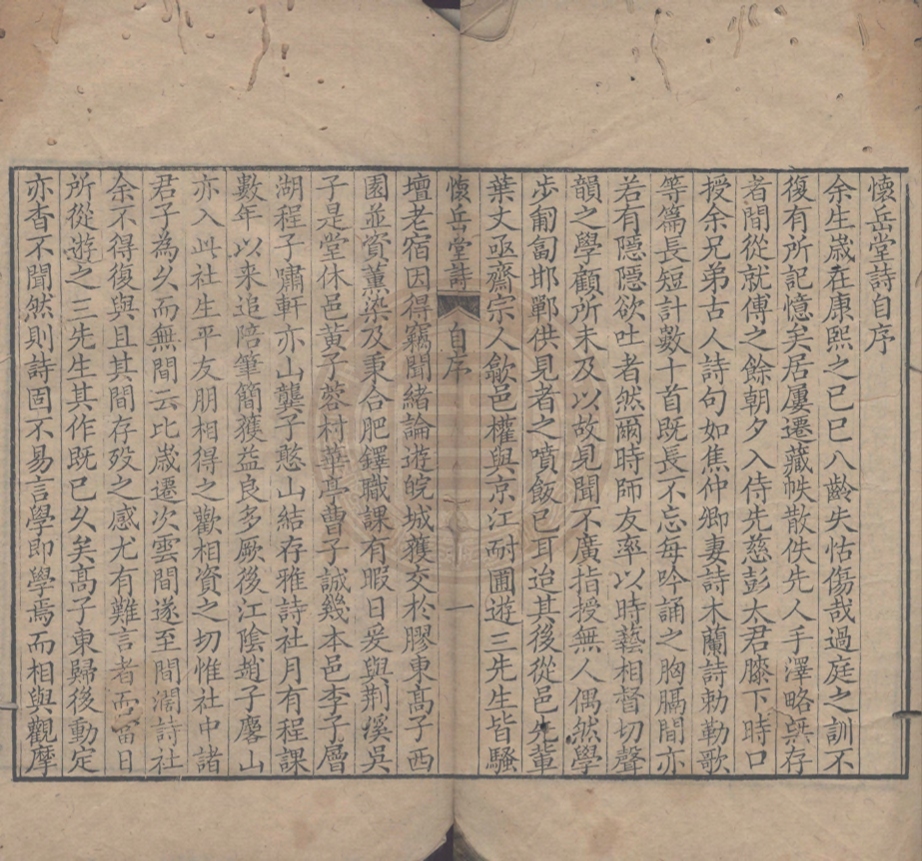 懷岳堂詩自序
余生歲在康熙之己巳八齡失怙傷哉過庭之訓不
復有所記憶矣居屢遷藏帙散佚先人手澤略無存
者間從就傅之餘朝夕入侍先慈彭太君膝下時口
授余兄弟古人詩句如焦仲卿妻詩木蘭詩勅勒歌
等篇長短計數十首既長不忘每吟誦之胸膈間亦
若有隱隱欲吐者然爾時師友率以時藝相督切聲
韻之學顧所未及以故見聞不廣指授無人偶然學
步匍匐邯鄲供見者之噴飯已耳迨其後從邑先輩
葉丈亟齋宗人歙邑權與京江耐圃遊三先生皆騷
懷岳堂詩
自序
一
壇老宿因得竊聞緒論遊皖城獲交於膠東高子西
園並資薰染及秉合肥鐸職課有暇日爰與荆溪吳
子是堂休邑黃子蓉村華亭曹子誠幾本邑李子層
湖程子嘯軒亦山龔子憨山結存雅詩社月有程課
數年以来追陪筆簡獲益良多厥後江陰趙子廮山
亦入此社生平友朋相得之歡相資之切惟社中諸
君子為久而無間云比歲遷次雲間遂至間濶詩社
余不得復與且其間存歿之感尤有難言者而當日
所從遊之三先生其作既已久矣高子東歸後動定
亦杳不聞然則詩固不易言學即學焉而相與觀摩